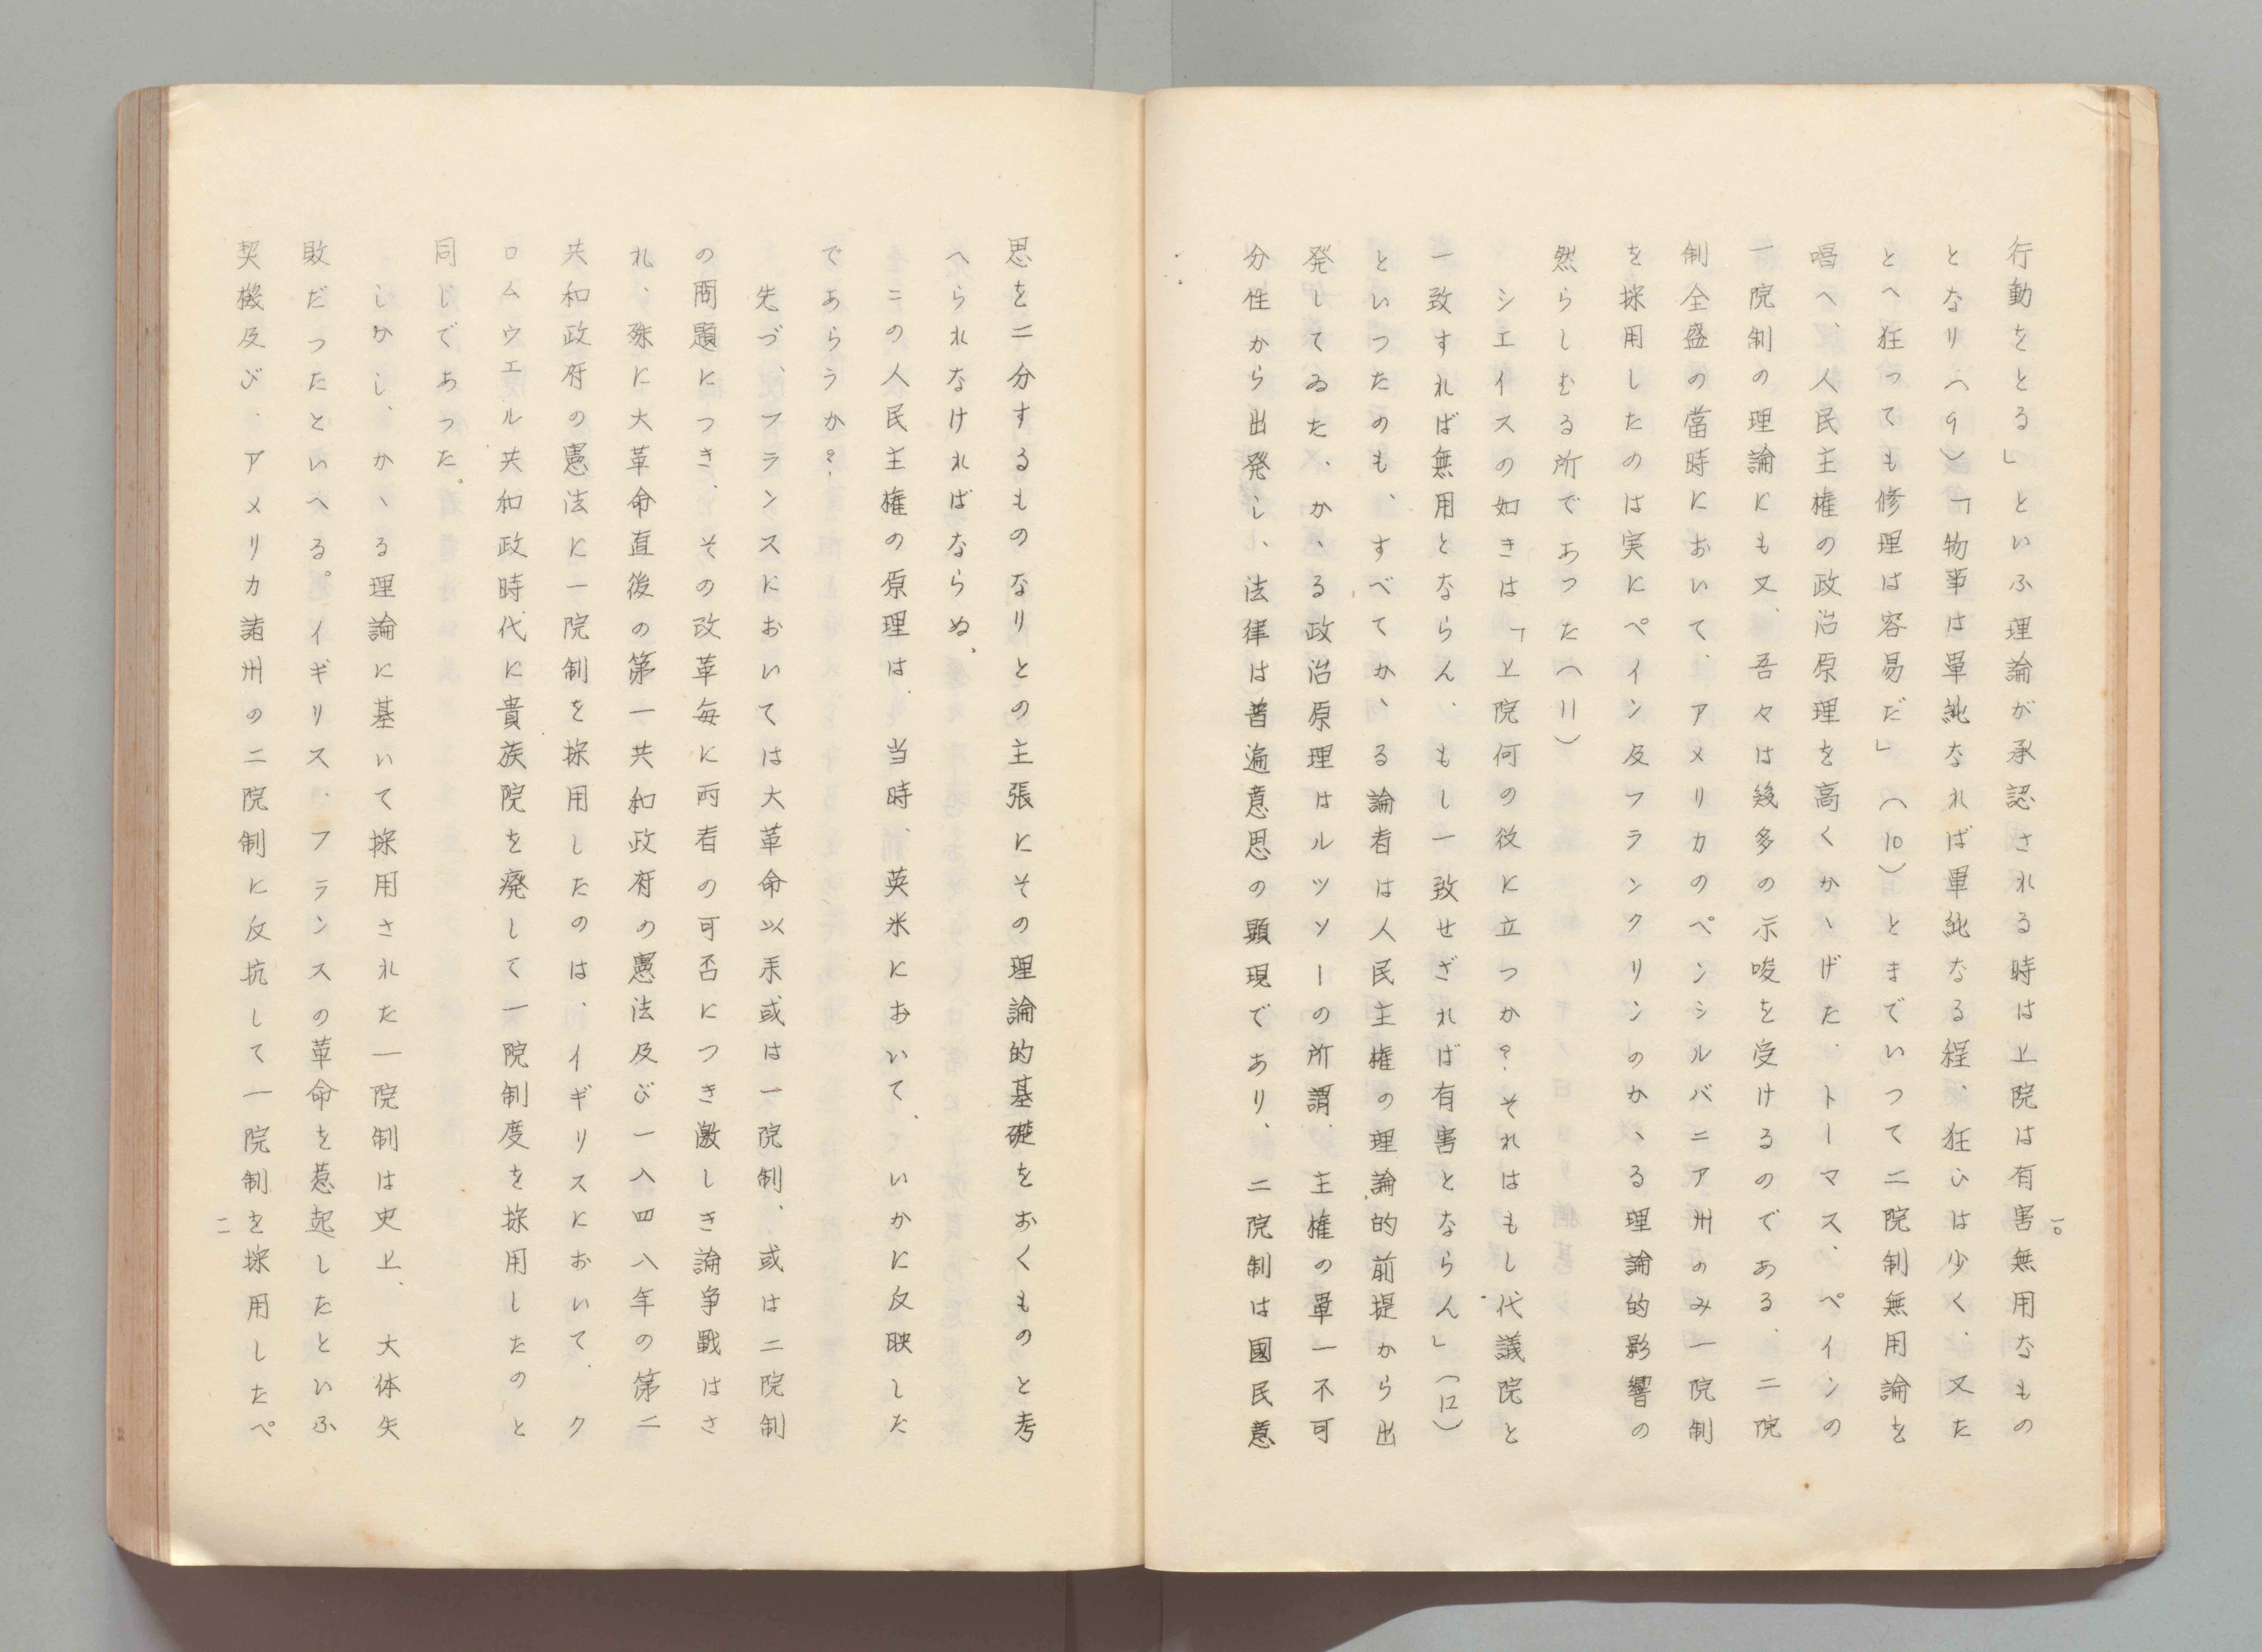 行動をとる」といふ理論が承認される時は上院は有害無用なもの
となり(9)「物事は單純なれば單純なる程、狂ひは少く、又た
とへ狂っても修理は容易だ」(10)とまでいつて二院制無用論を
唱へ、人民主権の政治原理を高くかゝげた、トーマス、ペインの
一院制の理論にも又、吾々は幾多の示唆を受けるのである、二院
制全盛の當時において、アメリカのペンシルバニア州のみ一院制
を採用したのは実にペイン及フランクリンのかゝる理論的影響の
然らしむる所であつた(11)
シエイスの如きは「上院何の役に立つか?それはもし代議院と
一致すれば無用とならん、もし一致せざれば有害とならん」(12)
といつたのも、すべてかゝる論者は人民主権の理論的前提から出
発してゐた、かゝる政治原理はルツソーの所謂、主権の單一不可
分性から出発し、法律は普遍意思の顕現であり、二院制は國民意
一〇
思を二分するものなりとの主張にその理論的基礎をおくものと考
へられなければならぬ。
この人民主権の原理は、当時、英米において、いかに反映した
であらうか?
先づ、フランスにおいては大革命以来或は一院制、或は二院制
の問題につき、その改革毎に両者の可否につき激しき論争戰はさ
れ、殊に大革命直後の第一共和政府の憲法及び一八四八年の第二
共和政府の憲法に一院制を採用したのは、イギリスにおいて、ク
ロムウエル共和政時代に貴族院を廃して一院制度を採用したのと
同じであつた。
しかし、かゝる理論に基いて採用された一院制は史上、大体失
敗だつたといへる。イギリス、フランスの革命を惹起したといふ
契機及び、アメリカ諸州の二院制に反抗して一院制を採用したペ
一一